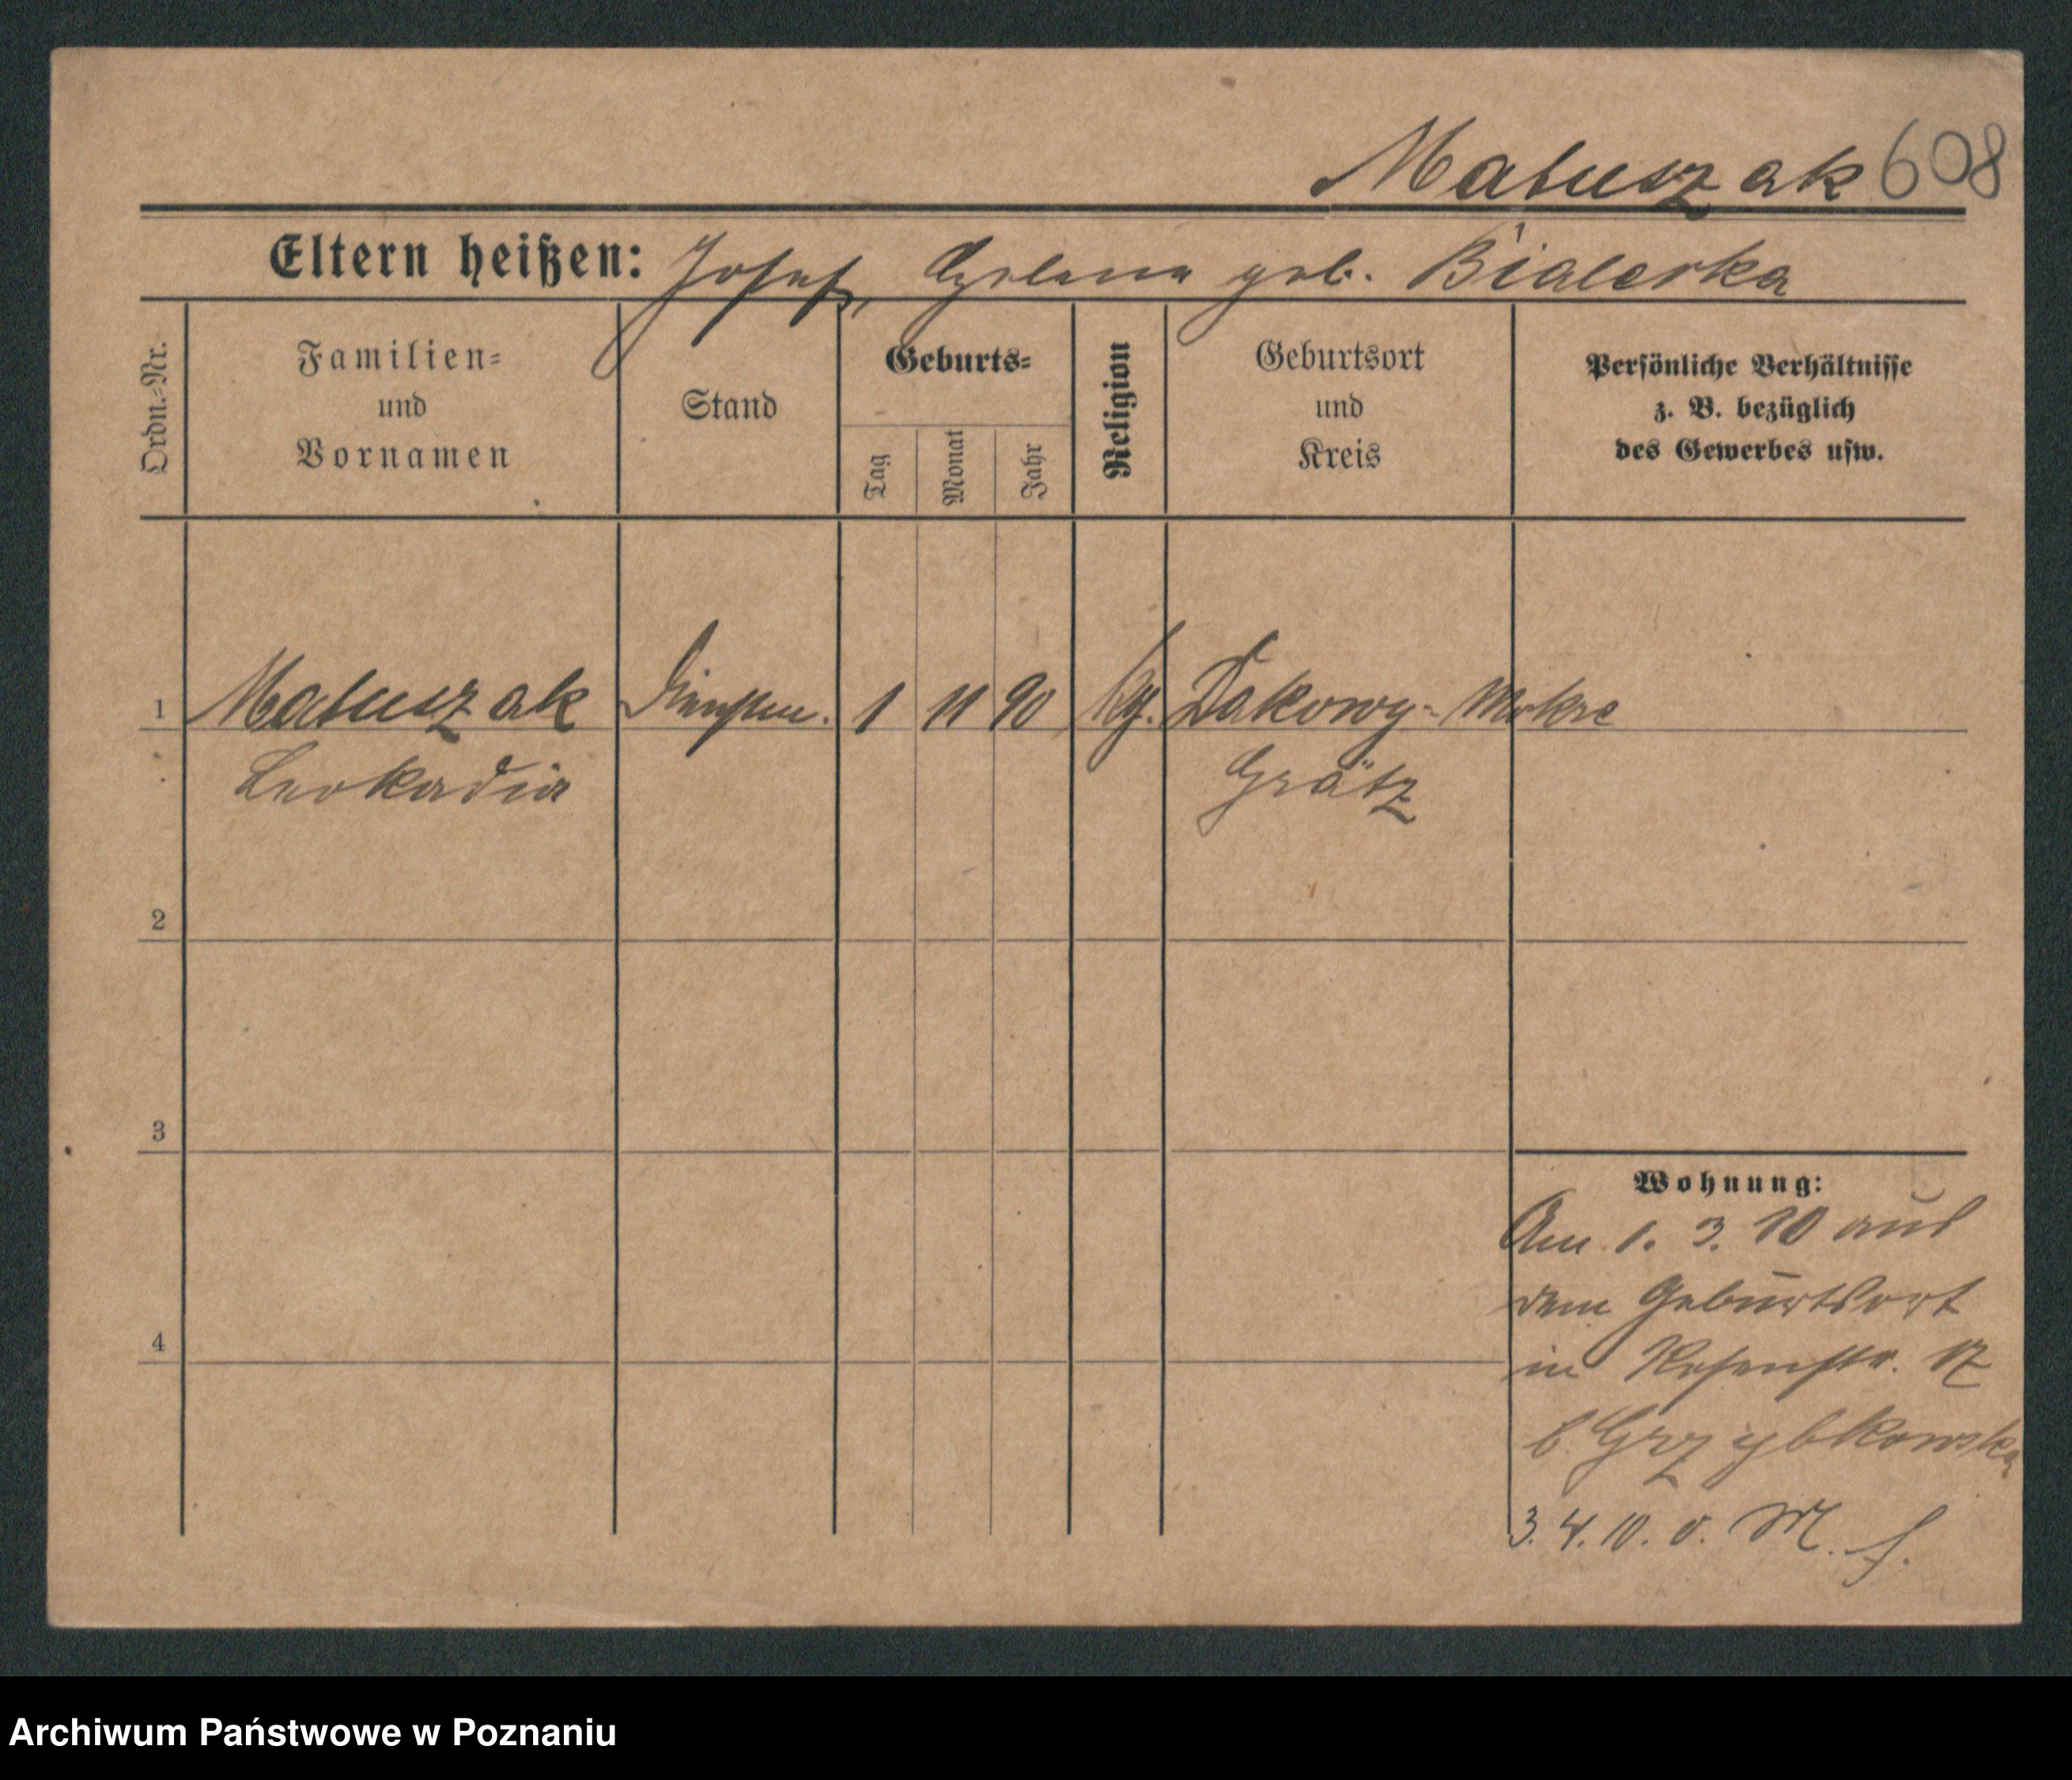 Matuszak 608
Eltern heißen: Josef, geb. Bialecka
Ordn.-Nr.
Familien-
und
Vornamen
Stand
Geburts-
Tag
Monat
Jahr
Religion
Geburtsort
und
Kreis
Persönliche Verhältnisse
z. B. bezüglich
des Gewerbes usw.
1 Matuszak 1 11 90 Dakowy-Mokre
Leokadia Grätz
2
3
4
Wohnung:
Am 1. 3. 10 aus
dem Geburtsort
in Rosenstr. 17
b. Grzybkowska
3. 4. 10.
Archiwum Państwowe w Poznaniu